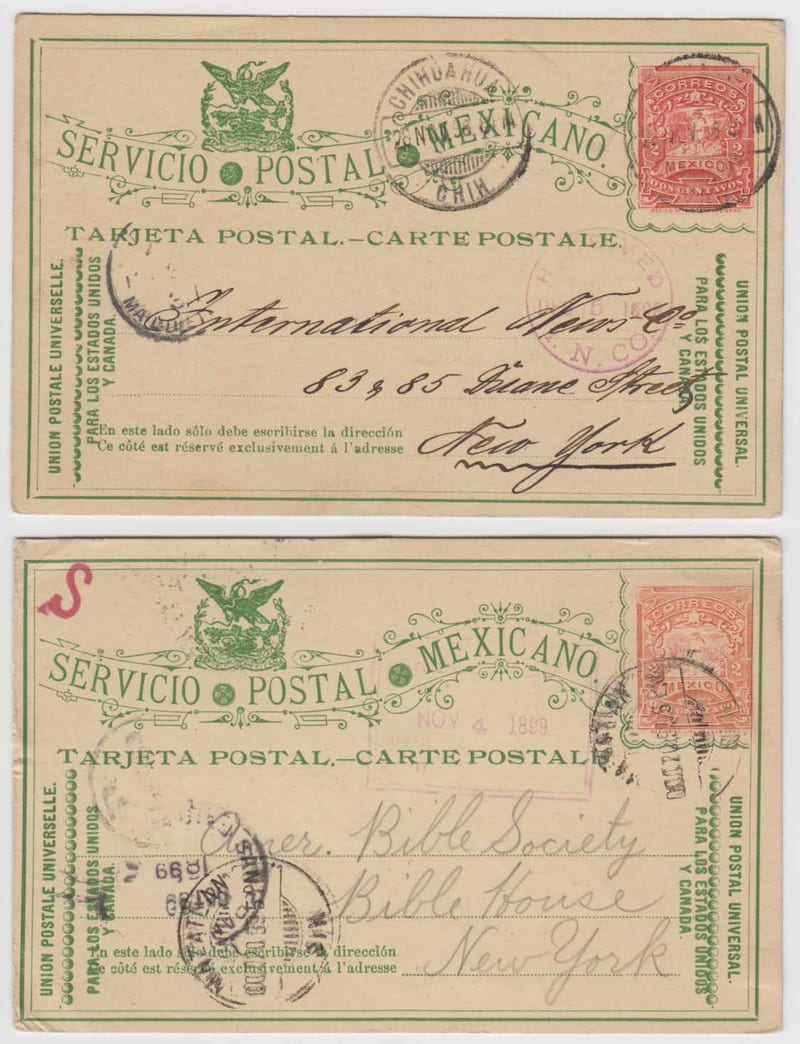 CORREOS
2 2
MEXICO
DOS CENTAVOS
CHIHUAHUA
CHIH
SERVICIO POSTAL MEXICANO.
TARJETA POSTAL.—CARTE POSTALE.
UNION POSTALE UNIVERSELLE.
PARA LOS ESTADOS UNIDOS
Y CANADA.
N. CO.
International News Co
83 & 85 Duane Street
New York
En este lado sólo debe escribirse la dirección
Ce côté est réservé exclusivement á l'adresse
UNION POSTAL UNIVERSAL.
PARA LOS ESTADOS UNIDOS
Y CANADA
S
CORREOS
2 2
MEXICO
SERVICIO POSTAL MEXICANO.
TARJETA POSTAL.—CARTE POSTALE
NOV 4 1899
UNION POSTALE UNIVERSELLE.
PARA LOS ESTADOS UNIDOS
Y CANADA
Amer. Bible Society
Bible House
New York
1899
SIN
En este lado sólo debe escribirse la dirección
Ce côté est réservé exclusivement á l'adresse
UNION POSTAL UNIVERSAL.
PARA LOS ESTADOS UNIDOS
Y CANADA